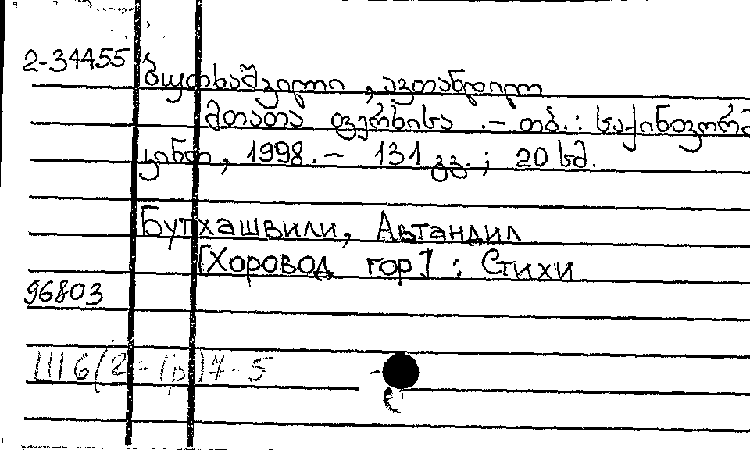 2-34455 ბუთხაშვილი, ავთანდილ
მთათა ფერხისა. - თბ.: საქინფორმ
კინო, 1998. - 131 გვ.; 20 სმ.
Бутхашвили, Автандил
[Хоровод гор] : Стихи
96803
Ш6(2-Гр)7-5